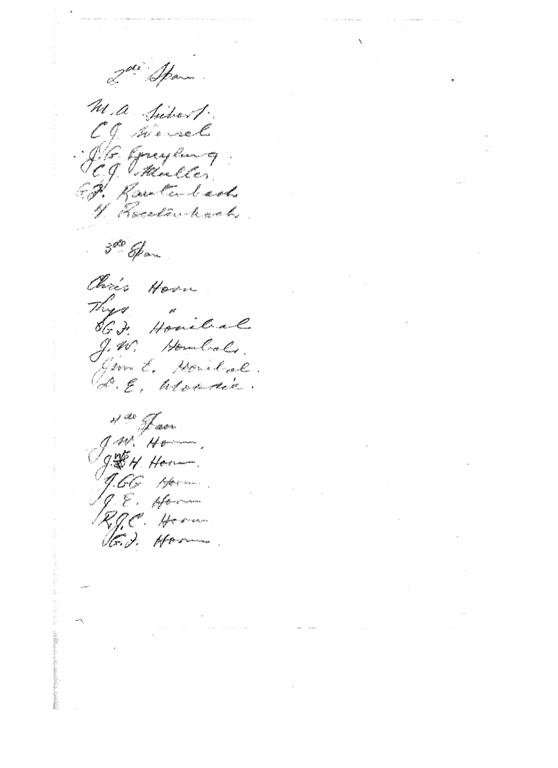 2de Span
M.A. Siebert.
C J Wessels
J.G. Greyling
C J Muller.
G.F. Rautenbach
Rautenbach
3de Span
Chris Horn
Thys "
G.F. Honibal
J.W. Honibal.
E. Honibal.
L.E.
4de Span
J.W. Horn.
J H Horn.
J.GG Horn
J.E. Horn
R.J.C. Horn
G.F. Horn